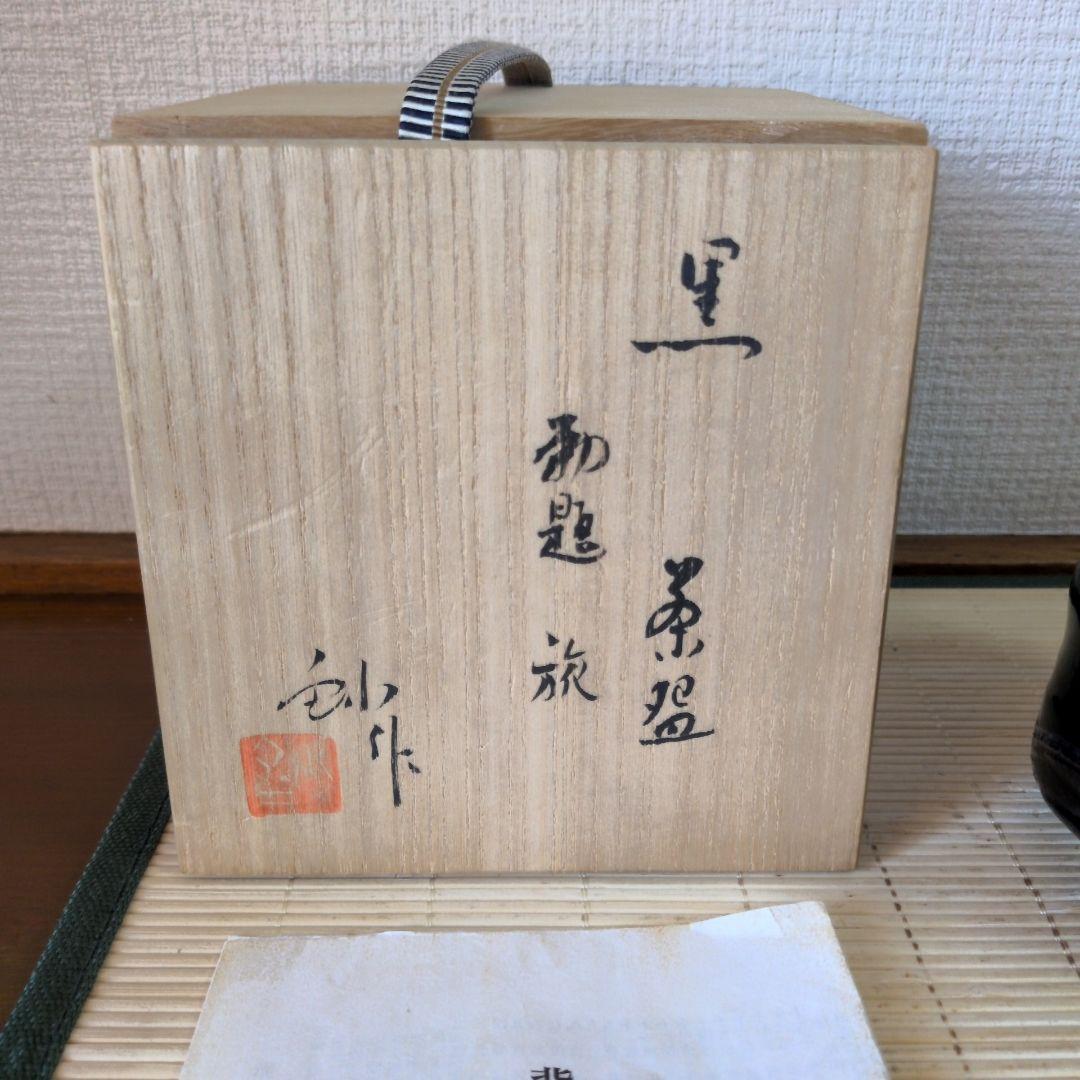 黒 茶盌
勅題 旅
作